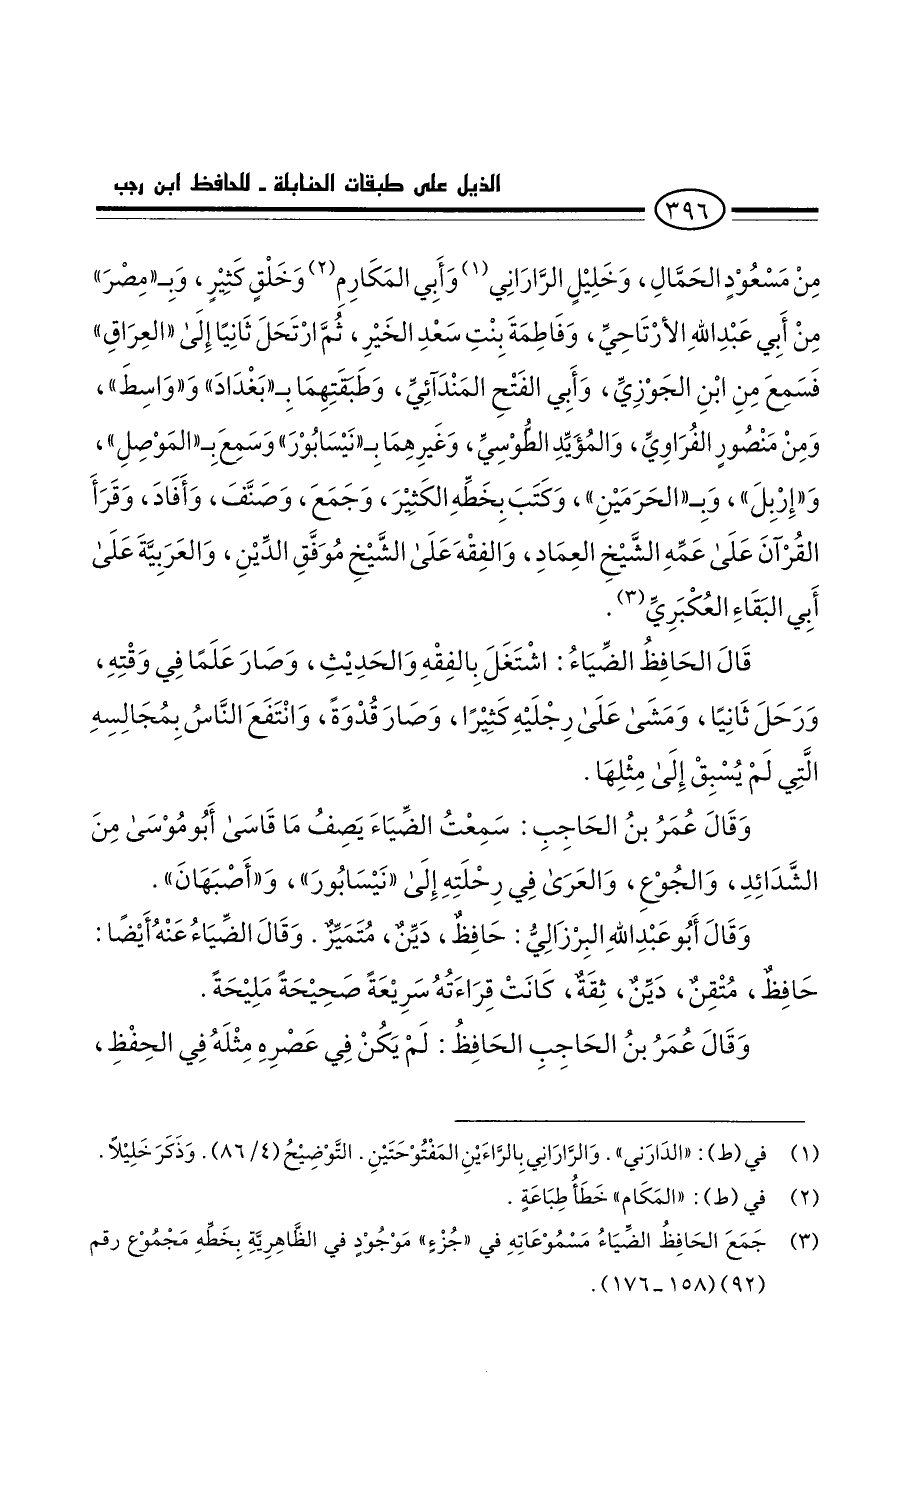 الذيل على طبقات الحنابلة ـ للحافظ ابن رجب
٣٩٦
مِنْ مَسْعُوْدٍ الحَمَّالِ، وَخَلِيْلٍ الرَّارَانِي(١) وَأَبِي المَكَارِمِ(٢) وَخَلْقٍ كَثِيْرٍ، وَبِـ«مِصْرَ»
مِنْ أَبِي عَبْدِاللهِ الأَرْتَاحِيِّ، وَفَاطِمَةَ بِنْتِ سَعْدِ الخَيْرِ، ثُمَّ ارْتَحَلَ ثَانِيًا إِلَىٰ «العِرَاقِ»
فَسَمِعَ مِنِ ابْنِ الجَوْزِيِّ، وَأَبِي الفَتْحِ المَنْدَآئِيِّ، وَطَبَقَتِهِمَا بِـ«بَغْدَادَ» وَ«وَاسِطَ»،
وَمِنْ مَنْصُورٍ الفُرَاوِيِّ، وَالمُؤَيِّدِ الطُّوْسِيِّ، وَغَيرِهِمَا بِـ«نَيْسَابُوْرَ» وَسَمِعَ بِـ«المَوْصِلِ»،
وَ«إِرْبِلَ»، وَبِـ«الحَرَمَيْنِ»، وَكَتَبَ بِخَطِّهِ الكَثِيْرَ، وَجَمَعَ، وَصَنَّفَ، وَأَفَادَ، وَقَرَأَ
القُرْآنَ عَلَىٰ عَمِّهِ الشَّيْخِ العِمَادِ، وَالفِقْهَ عَلَىٰ الشَّيْخِ مُوَفَّقِ الدِّيْنِ، وَالعَرَبِيَّةَ عَلَىٰ
أَبِي البَقَاءِ العُكْبَرِيِّ(٣).
قَالَ الحَافِظُ الضِّيَاءُ: اشْتَغَلَ بِالفِقْهِ وَالحَدِيْثِ، وَصَارَ عَلَمًا فِي وَقْتِهِ،
وَرَحَلَ ثَانِيًا، وَمَشَىٰ عَلَىٰ رِجْلَيْهِ كَثِيْرًا، وَصَارَ قُدْوَةً، وَانْتَفَعَ النَّاسُ بِمُجَالِسِهِ
الَّتِي لَمْ يُسْبِقْ إِلَىٰ مِثْلِهَا.
وَقَالَ عُمَرُ بنُ الحَاجِبِ: سَمِعْتُ الضِّيَاءَ يَصِفُ مَا قَاسَىٰ أَبُو مُوْسَىٰ مِنَ
الشَّدَائِدِ، وَالجُوْعِ، وَالعَرَىٰ فِي رِحْلَتِهِ إِلَىٰ «نَيْسَابُورَ»، وَ«أَصْبَهَانَ».
وَقَالَ أَبُو عَبْدِاللهِ البِرْزَالِيُّ: حَافِظٌ، دَيِّنٌ، مُتَمَيِّزٌ. وَقَالَ الضِّيَاءُ عَنْهُ أَيْضًا:
حَافِظٌ، مُتْقِنٌ، دَيِّنٌ، ثِقَةٌ، كَانَتْ قِرَاءَتُهُ سَرِيْعَةً صَحِيْحَةً مَلِيْحَةً.
وَقَالَ عُمَرُ بنُ الحَاجِبِ الحَافِظُ: لَمْ يَكُنْ فِي عَصْرِهِ مِثْلَهُ فِي الحِفْظِ،
(١) في (ط): «الدَارَني». وَالرَّارَانِي بِالرَّاءَيْنِ المَفْتُوْحَتَيْنِ. التَّوْضِيْحُ (٤/ ٨٦). وَذَكَرَ خَلِيْلاً.
(٢) في (ط): «المَكَام» خَطَأُ طِبَاعَةٍ.
(٣) جَمَعَ الحَافِظُ الضِّيَاءُ مَسْمُوْعَاتِهِ في «جُزْءٍ» مَوْجُوْدٍ في الظَّاهِرِيَّةِ بِخَطِّهِ مَجْمُوْع رقم
(٩٢) (١٥٨ ـ ١٧٦).